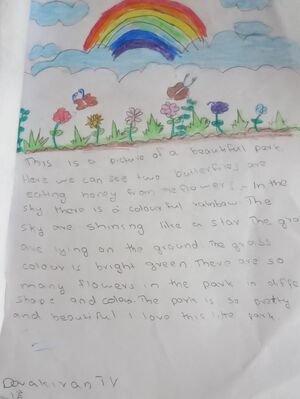 This is a picture of a beautiful park.
Here we can see two butterflies are
eating honey from the flowers. In the
sky there is a colourful rainbow. The
sky are shining like a star The gra
are lying on the ground. The grass
colour is bright green There are so
many flowers in the park in diffe
shape and colour. The park is so pretty
and beautiful I love this park